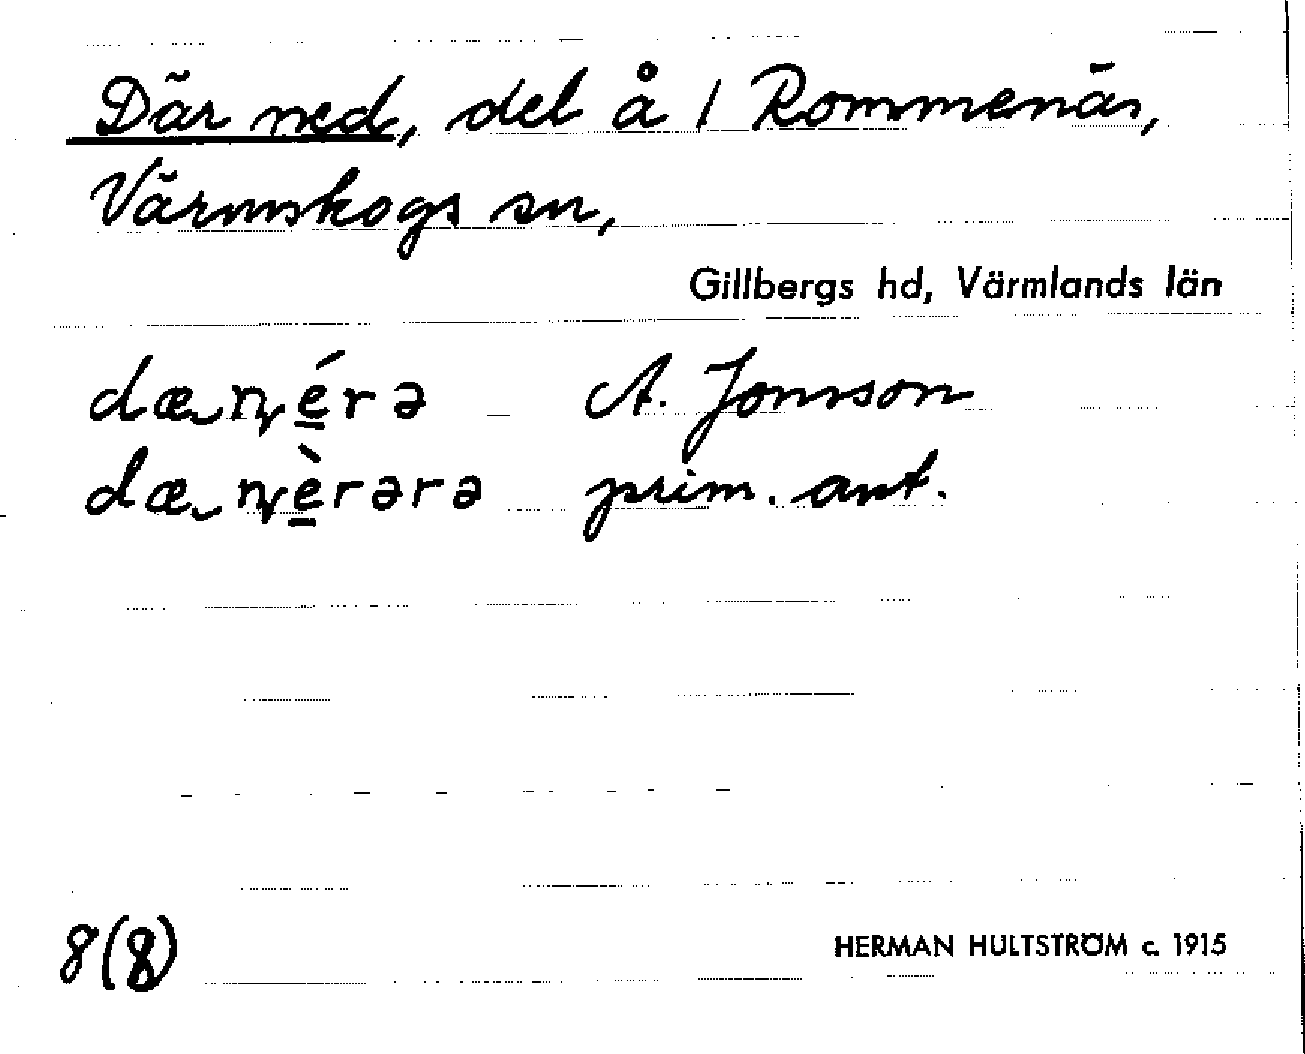 Där ned, del å 1 Rommenäs,
Värmskogs sn,
Gillbergs hd, Värmlands län
dæɳérə A. Jonsson
dæɳèrərə prim. ant.
8(8)
HERMAN HULTSTRÖM c. 1915